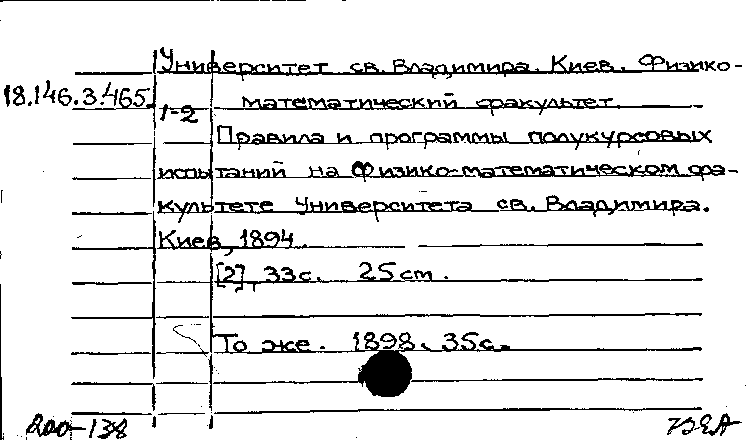 Университет св. Владимира. Киев. Физико-
18.146.3.465.
1-2
математический факультет.
Правила и программы полукурсовых
испытаний на Физико-математическом фа-
культете Университета св. Владимира.
Киев, 1894.
[2], 33с. 25ст.
То же. 1898. 35с.
200-138